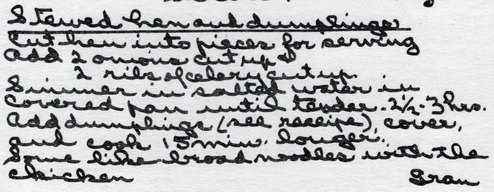 Stewed hen and dumplings
Cut hen into pieces for serving
Add 2 onions cut up
2 ribs of celery cut up.
Simmer in salted water in
covered pan until tender. 2½-3 hrs.
Add dumplings (see receipe), cover,
and cook 15 min. longer.
Some like broad noodles with the
chicken Gran